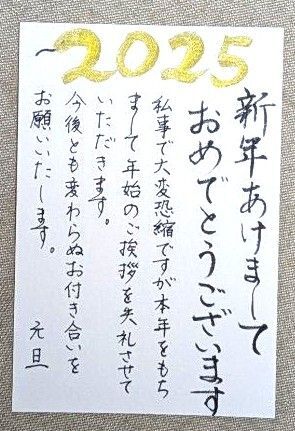 ~2025
新年あけまして
おめでとうございます
私事で大変恐縮ですが本年をもち
まして年始のご挨拶を失礼させて
いただきます。
今後とも変わらぬお付き合いを
お願いいたします。
元旦